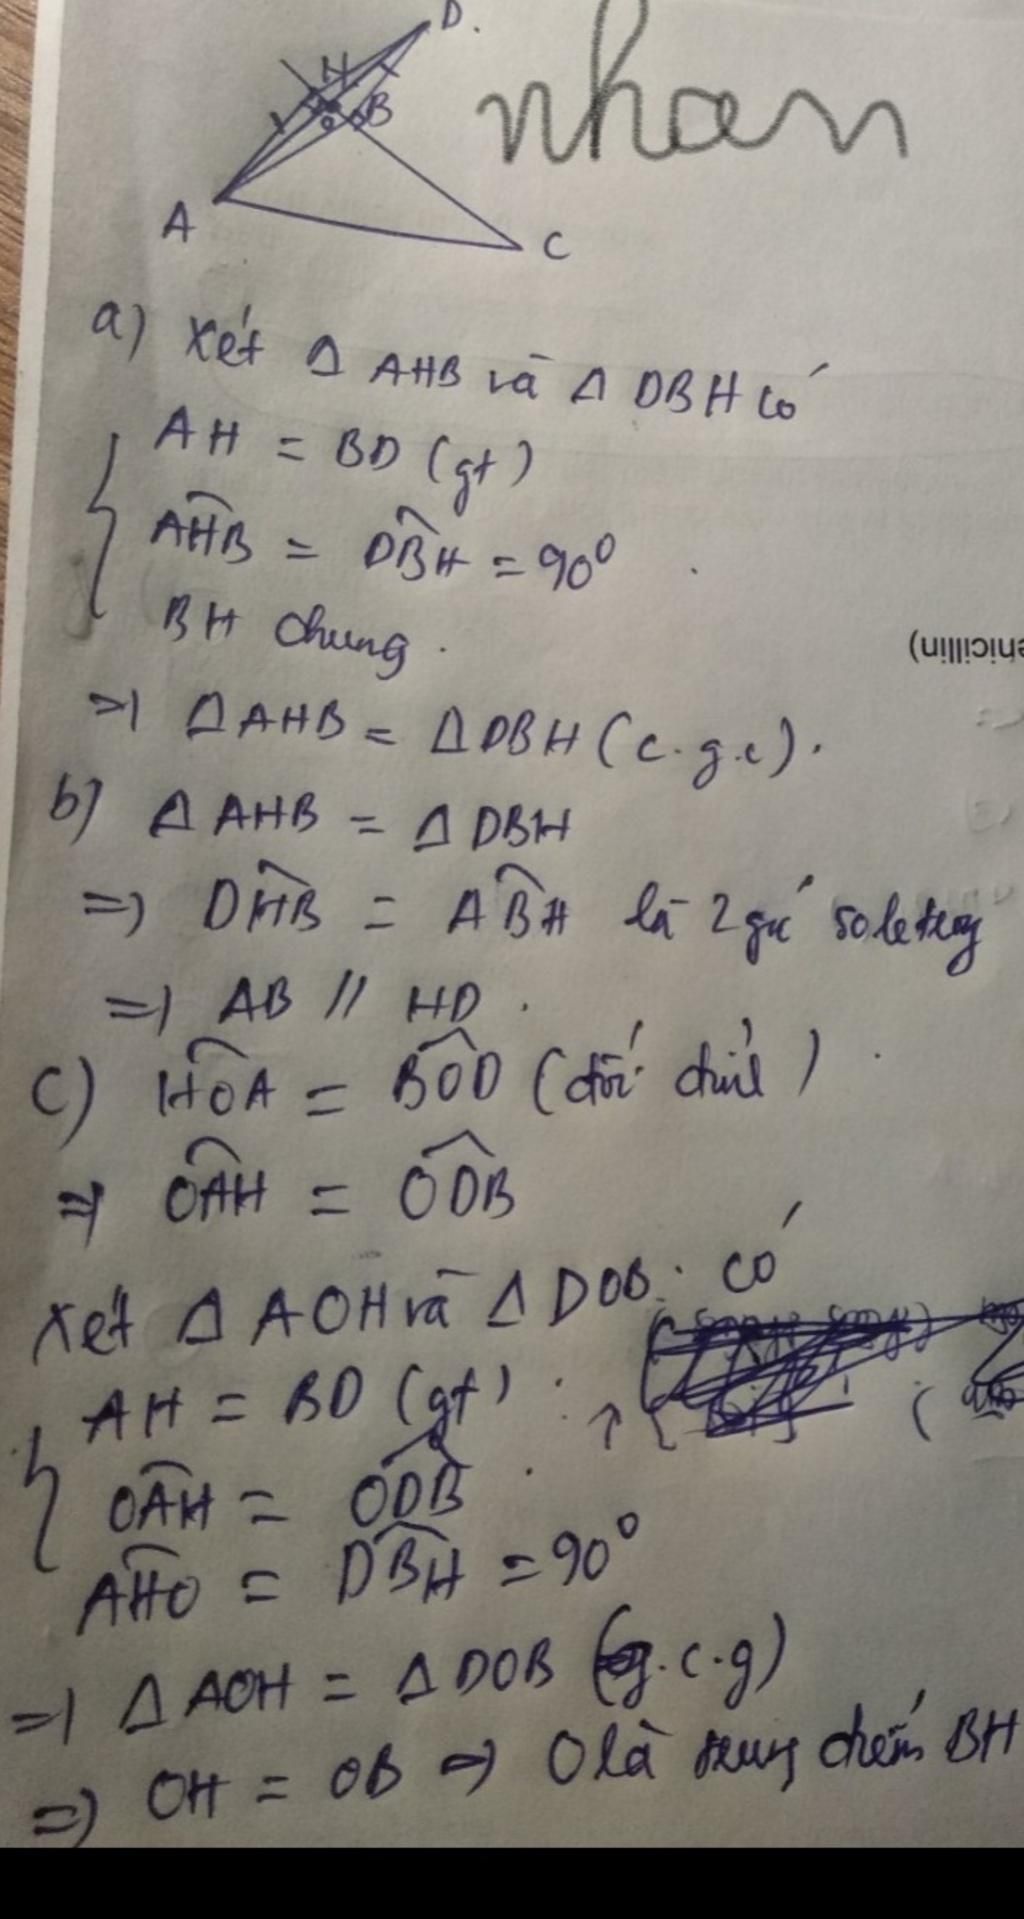 D.
nhan
H
B
O
A
C
a) Xét Δ AHB và Δ DBH có
AH = BD (gt)
AHB = DBH = 90°
BH chung.
enicillin)
=) Δ AHB = Δ DBH (c.g.c).
b) Δ AHB = Δ DBH
=) DHB = ABH là 2 góc so le trong
=) AB // HD.
c) HOA = BOD (đối đỉnh)
=) OAH = ODB
Xét Δ AOH và Δ DOB có
AH = BD (gt)
OAH = ODB
AHO = DBH = 90°
=) Δ AOH = Δ DOB (g.c.g)
=) OH = OB => O là trung điểm BH